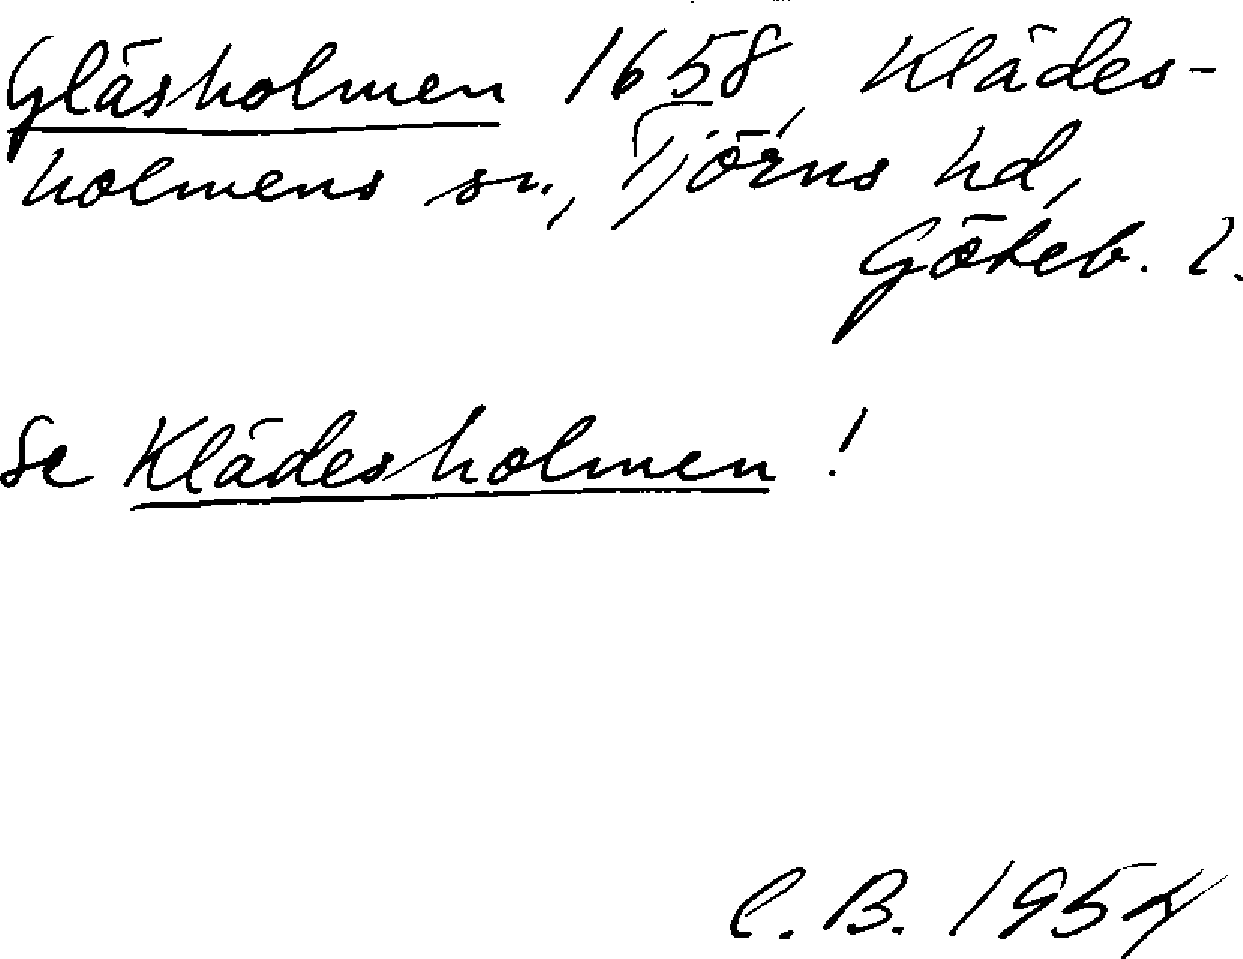 Gläsholmen 1658, Klädes-
holmens sn., Tjörns hd,
Göteb. l.
Se Klädesholmen!
C. B. 1954